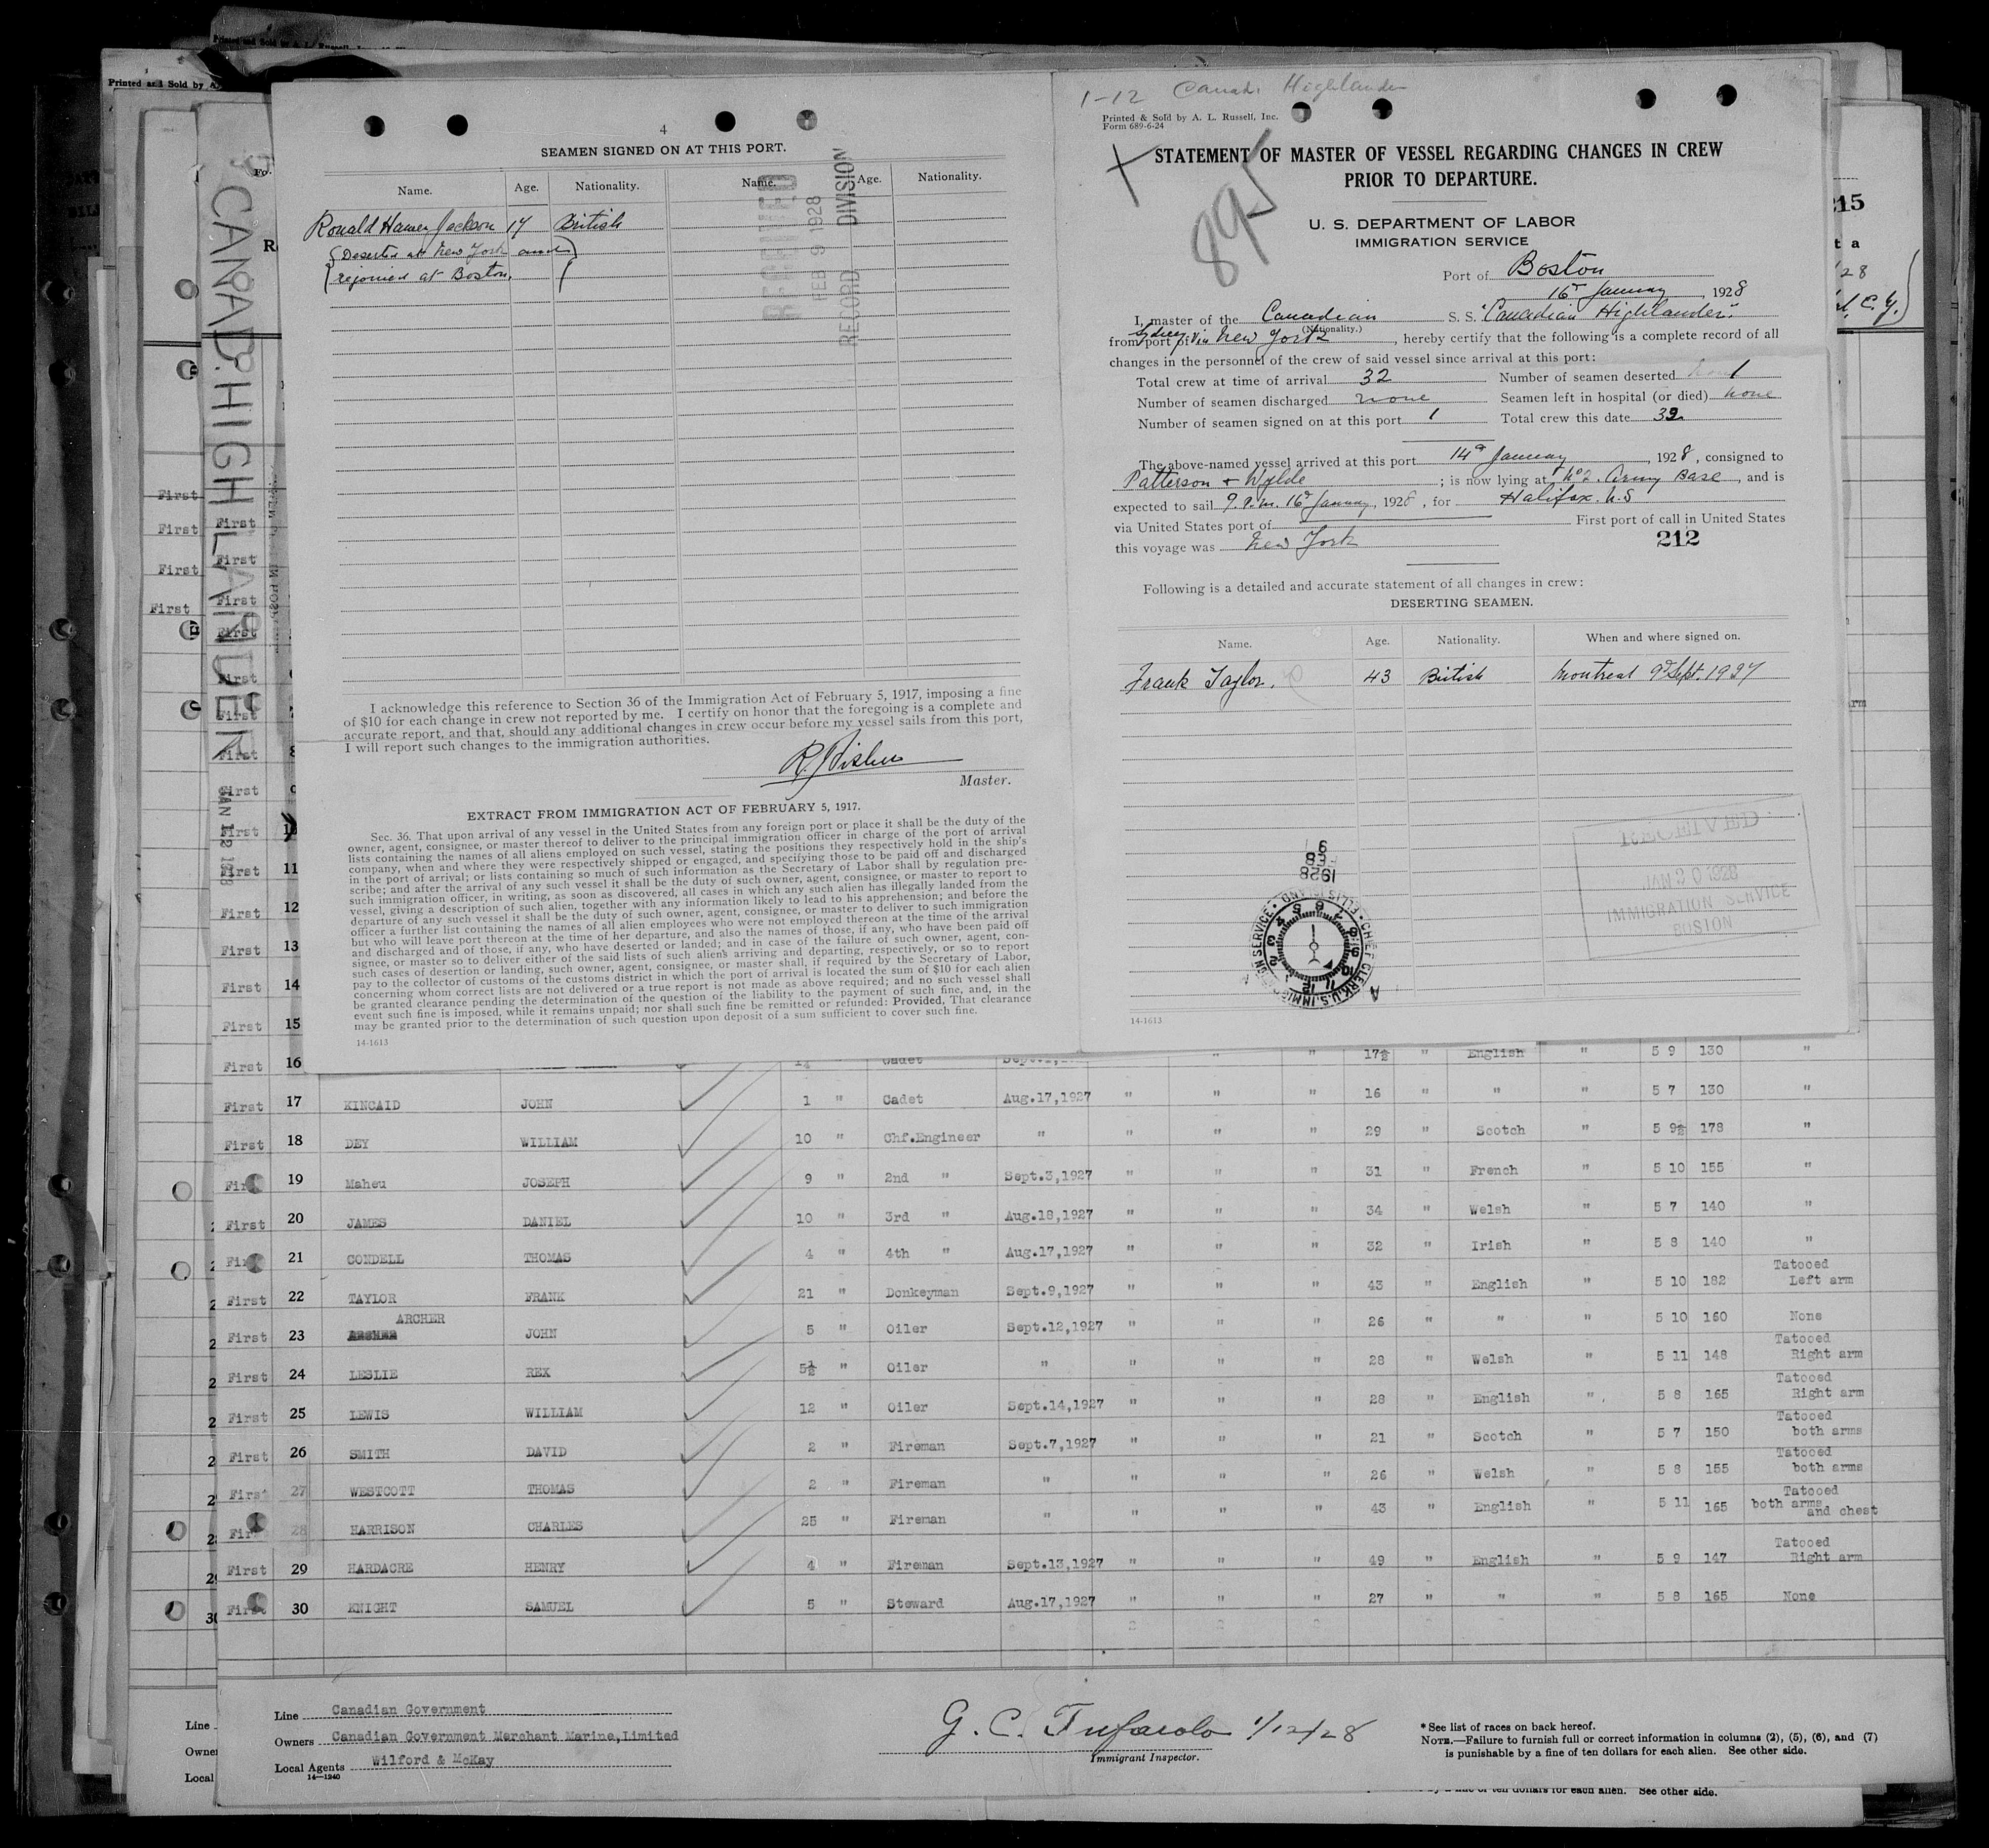 Printed and Sold by A. L. Russell
Printed and Sold by A
1-12 Canad. Highlander
Printed & Sold by A. L. Russell, Inc.
Form 689-6-24
4
SEAMEN SIGNED ON AT THIS PORT.
Name. Age. Nationality. Name. Age. Nationality.
Ronald Harvey Jackson 17 British
(Deserted at New York and)
(rejoined at Boston.)
RECEIVED
FEB 9 1928
RECORD DIVISION
I acknowledge this reference to Section 36 of the Immigration Act of February 5, 1917, imposing a fine
of $10 for each change in crew not reported by me. I certify on honor that the foregoing is a complete and
accurate report, and that, should any additional changes in crew occur before my vessel sails from this port,
I will report such changes to the immigration authorities.
Master.
EXTRACT FROM IMMIGRATION ACT OF FEBRUARY 5, 1917.
Sec. 36. That upon arrival of any vessel in the United States from any foreign port or place it shall be the duty of the
owner, agent, consignee, or master thereof to deliver to the principal immigration officer in charge of the port of arrival
lists containing the names of all aliens employed on such vessel, stating the positions they respectively hold in the ship's
company, when and where they were respectively shipped or engaged, and specifying those to be paid off and discharged
in the port of arrival; or lists containing so much of such information as the Secretary of Labor shall by regulation pre-
scribe; and after the arrival of any such vessel it shall be the duty of such owner, agent, consignee, or master to report to
such immigration officer, in writing, as soon as discovered, all cases in which any such alien has illegally landed from the
vessel, giving a description of such alien, together with any information likely to lead to his apprehension; and before the
departure of any such vessel it shall be the duty of such owner, agent, consignee, or master to deliver to such immigration
officer a further list containing the names of all alien employees who were not employed thereon at the time of the arrival
but who will leave port thereon at the time of her departure, and also the names of those, if any, who have been paid off
and discharged and of those, if any, who have deserted or landed; and in case of the failure of such owner, agent, con-
signee, or master so to deliver either of the said lists of such aliens arriving and departing, respectively, or so to report
such cases of desertion or landing, such owner, agent, consignee, or master shall, if required by the Secretary of Labor,
pay to the collector of customs of the customs district in which the port of arrival is located the sum of $10 for each alien
concerning whom correct lists are not delivered or a true report is not made as above required; and no such vessel shall
be granted clearance pending the determination of the question of the liability to the payment of such fine, and, in the
event such fine is imposed, while it remains unpaid; nor shall such fine be remitted or refunded: Provided, That clearance
may be granted prior to the determination of such question upon deposit of a sum sufficient to cover such fine.
14-1613
895
STATEMENT OF MASTER OF VESSEL REGARDING CHANGES IN CREW
PRIOR TO DEPARTURE.
U. S. DEPARTMENT OF LABOR
IMMIGRATION SERVICE
Port of Boston
16th January, 1928
I, master of the Canadian S. S. "Canadian Highlander"
(Nationality.)
from port of Sydney via New York, hereby certify that the following is a complete record of all
changes in the personnel of the crew of said vessel since arrival at this port:
Total crew at time of arrival 32 Number of seamen deserted 1
Number of seamen discharged none Seamen left in hospital (or died) none
Number of seamen signed on at this port 1 Total crew this date 32
The above-named vessel arrived at this port 14th January, 1928, consigned to
Patterson & Wylde; is now lying at No 2. Army Base, and is
expected to sail 9. P.M. 16th January, 1928, for Halifax. N.S
via United States port of First port of call in United States
this voyage was New York
212
Following is a detailed and accurate statement of all changes in crew:
DESERTING SEAMEN.
Name. Age. Nationality. When and where signed on.
Frank Taylor. 43 British Montreal 9th Sept. 1927
RECEIVED
JAN 20 1928
IMMIGRATION SERVICE
BOSTON
1928
FEB 9
CHIEF CLERK, U.S. IMMIGRATION SERVICE • ELLIS ISLAND
14-1613
215
CANAD. HIGHLANDER
JAN 12 1928
First
First
First
First
First
First
First
First
First
First
First
First
First
First 11
First 12
First 13
First 14
First 15
First 16 Cadet 17½ " English " 5 9 130 "
First 17 KINCAID JOHN 1 " Cadet Aug.17,1927 " " " 16 " " " 5 7 130 "
First 18 DEY WILLIAM 10 " Chf.Engineer " " " " 29 " Scotch " 5 9½ 178 "
First 19 Maheu JOSEPH 9 " 2nd " Sept.3,1927 " " " 31 " French " 5 10 155 "
First 20 JAMES DANIEL 10 " 3rd " Aug.18,1927 " " " 34 " Welsh " 5 7 140 "
First 21 CONDELL THOMAS 4 " 4th " Aug.17,1927 " " " 32 " Irish " 5 8 140 "
First 22 TAYLOR FRANK 21 " Donkeyman Sept.9,1927 " " " 43 " English " 5 10 182 Tatooed Left arm
First 23 ARCHER JOHN 5 " Oiler Sept.12,1927 " " " 26 " " " 5 10 160 None
First 24 LESLIE REX 5½ " Oiler " " " " 28 " Welsh " 5 11 148 Tatooed Right arm
First 25 LEWIS WILLIAM 12 " Oiler Sept.14,1927 " " " 28 " English " 5 8 165 Tatooed Right arm
First 26 SMITH DAVID 2 " Fireman Sept.7,1927 " " " 21 " Scotch " 5 7 150 Tatooed both arms
First 27 WESTCOTT THOMAS 2 " Fireman " " " " 26 " Welsh " 5 8 155 Tatooed both arms
First 28 HARRISON CHARLES 25 " Fireman " " " " 43 " English " 5 11 165 Tatooed both arms and chest
First 29 HARDACRE HENRY 4 " Fireman Sept.13,1927 " " " 49 " English " 5 9 147 Tatooed Right arm
First 30 KNIGHT SAMUEL 5 " Steward Aug.17,1927 " " " 27 " " " 5 8 165 None
Line Canadian Government
Owners Canadian Government Merchant Marine,Limited
Local Agents Wilford & McKay
14-1240
1/12/28
Immigrant Inspector.
* See list of races on back hereof.
NOTE.—Failure to furnish full or correct information in columns (2), (5), (6), and (7)
is punishable by a fine of ten dollars for each alien. See other side.
by a fine of ten dollars for each alien. See other side.
Line
Owner
Local